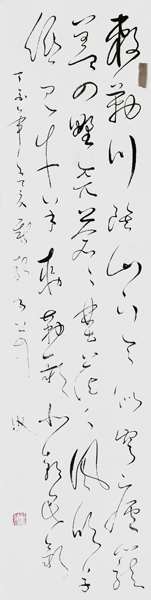 敕勒川陰山下天似穹廬籠
蓋四野天蒼〻野茫〻風吹草
低見牛羊敕勒歌北朝民歌